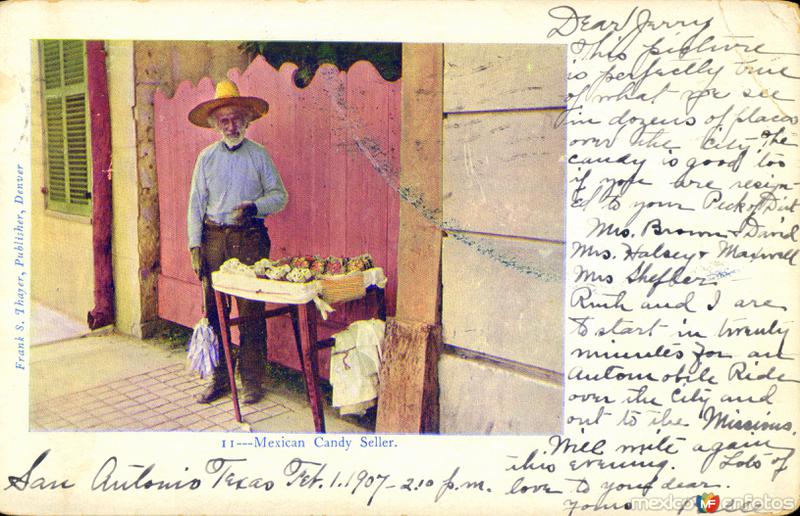 Dear Jerry
This picture
is perfectly true
of what we see
in dozens of places
over the city. The
candy is good too
if you are resign-
ed to your Peck of Dirt
Mrs. Brown & David
Mrs. Halsey & Maxwell
Mrs Sheffer
Ruth and I are
to start in twenty
minutes for an
Automobile Ride
over the City and
out to the Missions.
Will write again
this evening. Lots of
love to you dear.
Yours
Frank S. Thayer, Publisher, Denver
11---Mexican Candy Seller.
San Antonio Texas Feb. 1. 1907 - 2.10 p.m.
mexicoenfotos